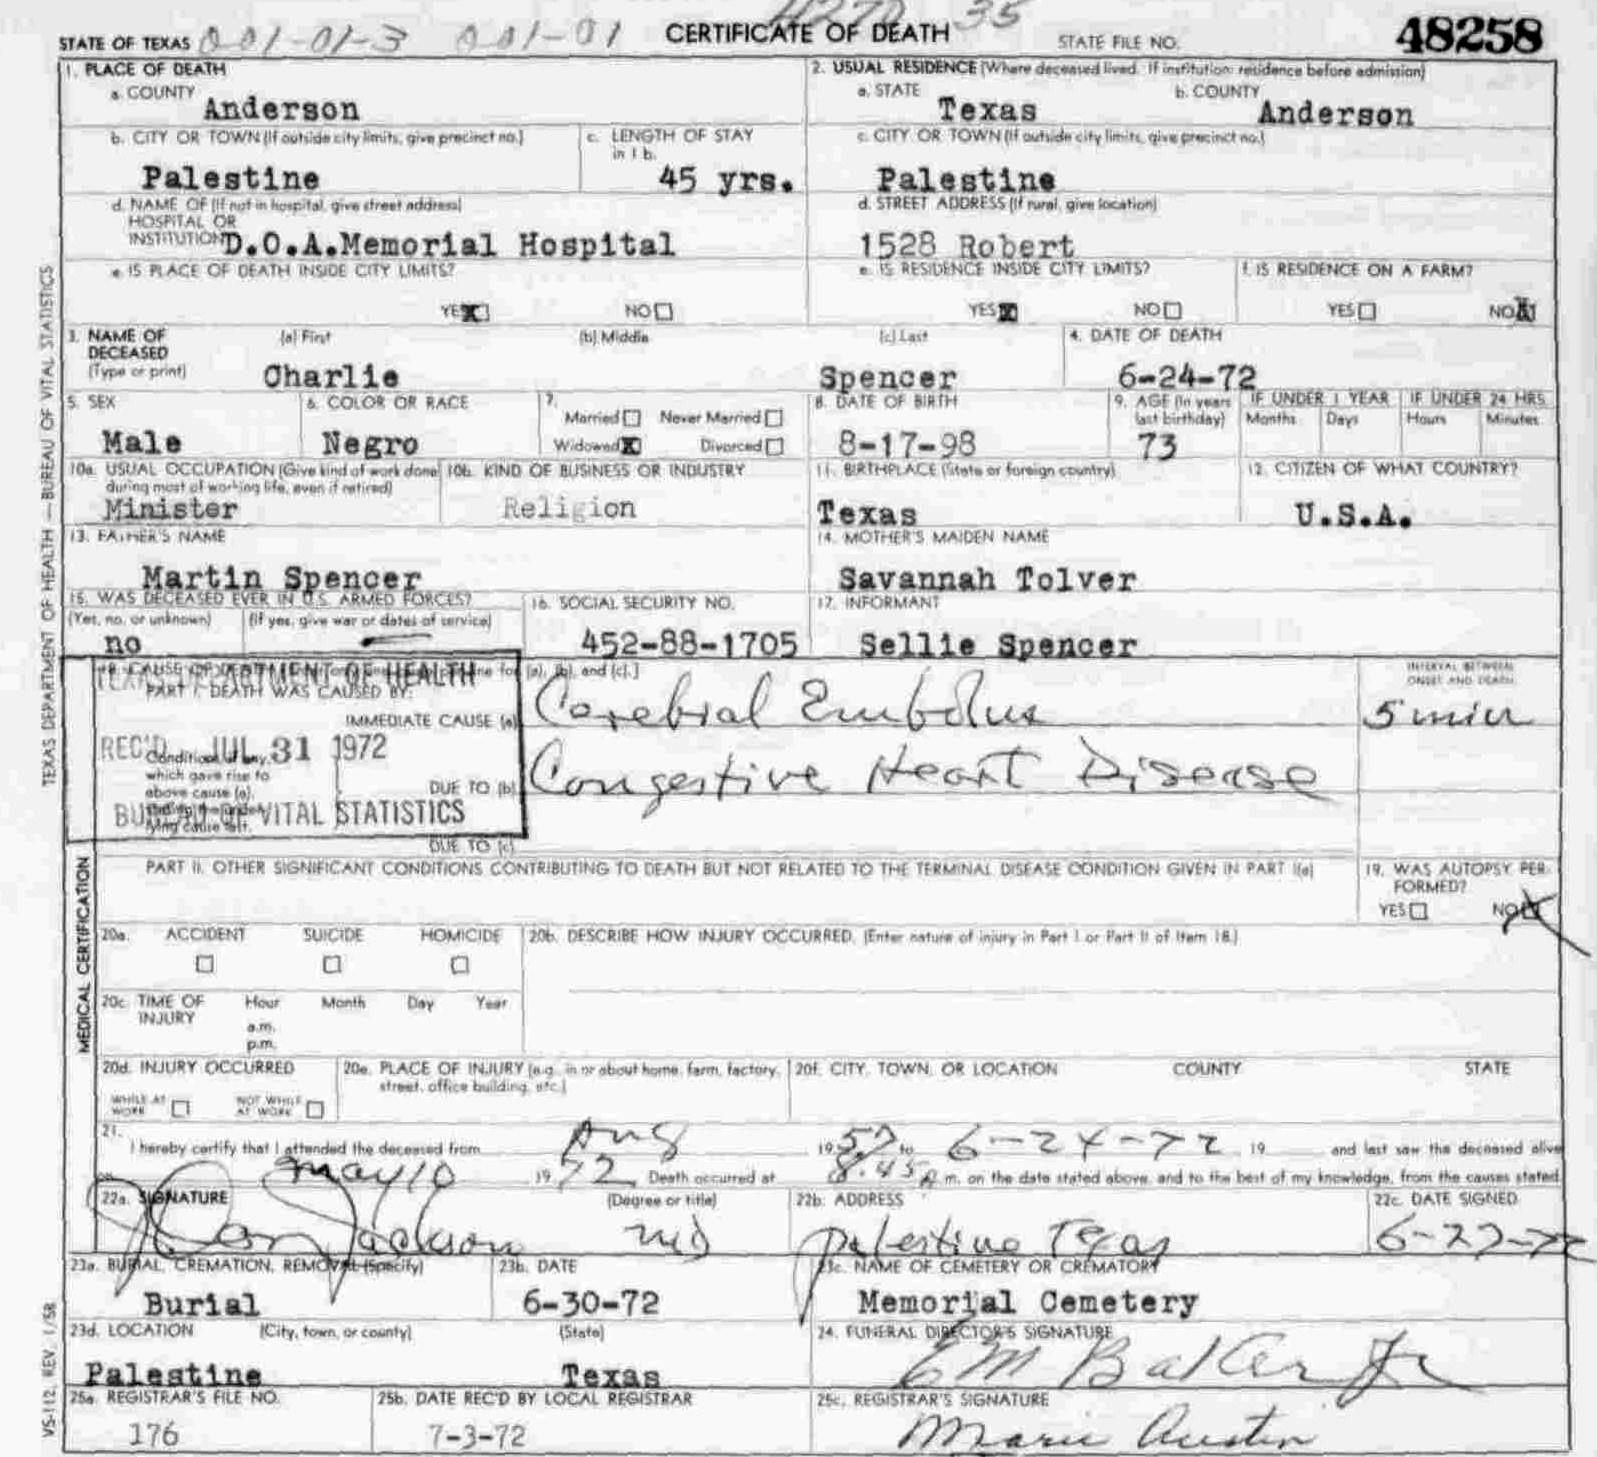 4270 35
STATE OF TEXAS 001-01-3 001-01 CERTIFICATE OF DEATH STATE FILE NO. 48258
1. PLACE OF DEATH
a. COUNTY
Anderson
2. USUAL RESIDENCE (Where deceased lived. If institution: residence before admission)
a. STATE b. COUNTY
Texas Anderson
b. CITY OR TOWN (If outside city limits, give precinct no.) c. LENGTH OF STAY
in 1 b.
Palestine 45 yrs.
c. CITY OR TOWN (If outside city limits, give precinct no.)
Palestine
d. NAME OF (If not in hospital, give street address)
HOSPITAL OR
INSTITUTION D.O.A.Memorial Hospital
d. STREET ADDRESS (If rural, give location)
1528 Robert
e. IS PLACE OF DEATH INSIDE CITY LIMITS?
YES NO
e. IS RESIDENCE INSIDE CITY LIMITS? f. IS RESIDENCE ON A FARM?
YES NO YES NO
3. NAME OF (a) First (b) Middle (c) Last 4. DATE OF DEATH
DECEASED
(Type or print) Charlie Spencer 6-24-72
5. SEX 6. COLOR OR RACE 7. 8. DATE OF BIRTH 9. AGE (In years IF UNDER 1 YEAR IF UNDER 24 HRS.
Married Never Married last birthday) Months Days Hours Minutes
Male Negro Widowed Divorced 8-17-98 73
10a. USUAL OCCUPATION (Give kind of work done 10b. KIND OF BUSINESS OR INDUSTRY 11. BIRTHPLACE (State or foreign country) 12. CITIZEN OF WHAT COUNTRY?
during most of working life, even if retired)
Minister Religion Texas U.S.A.
13. FATHER'S NAME 14. MOTHER'S MAIDEN NAME
Martin Spencer Savannah Tolver
15. WAS DECEASED EVER IN U.S. ARMED FORCES? 16. SOCIAL SECURITY NO. 17. INFORMANT
(Yes, no, or unknown) (If yes, give war or dates of service)
no 452-88-1705 Sellie Spencer
18. CAUSE OF DEATH line for (a), (b), and (c).] INTERVAL BETWEEN
ONSET AND DEATH
DEPARTMENT OF HEALTH
PART I. DEATH WAS CAUSED BY:
IMMEDIATE CAUSE (a) Cerebial Embolus 5 min
REC'D JUL 31 1972
Conditions, if any,
which gave rise to
above cause (a),
DUE TO (b) Congestive Heart Disease
lying cause last.
BUREAU OF VITAL STATISTICS
DUE TO (c)
PART II. OTHER SIGNIFICANT CONDITIONS CONTRIBUTING TO DEATH BUT NOT RELATED TO THE TERMINAL DISEASE CONDITION GIVEN IN PART I(a)
19. WAS AUTOPSY PER-
FORMED?
YES NO
20a. ACCIDENT SUICIDE HOMICIDE 20b. DESCRIBE HOW INJURY OCCURRED. (Enter nature of injury in Part I or Part II of Item 18.)
20c. TIME OF Hour Month Day Year
INJURY
a.m.
p.m.
20d. INJURY OCCURRED 20e. PLACE OF INJURY (e.g., in or about home, farm, factory, 20f. CITY, TOWN, OR LOCATION COUNTY STATE
street, office building, etc.)
WHILE AT NOT WHILE
WORK AT WORK
21.
I hereby certify that I attended the deceased from Aug 1957 to 6-24-72 19 and last saw the deceased alive
on May 10 1972 Death occurred at 8:45 p m. on the date stated above, and to the best of my knowledge, from the causes stated.
22a. SIGNATURE (Degree or title) 22b. ADDRESS 22c. DATE SIGNED
Jackson MD Palestine Texas 6-27-72
23a. BURIAL, CREMATION, REMOVAL (Specify) 23b. DATE 23c. NAME OF CEMETERY OR CREMATORY
Burial 6-30-72 Memorial Cemetery
23d. LOCATION (City, town, or county) (State) 24. FUNERAL DIRECTOR'S SIGNATURE
Palestine Texas EM Baker Jr
25a. REGISTRAR'S FILE NO. 25b. DATE REC'D BY LOCAL REGISTRAR 25c. REGISTRAR'S SIGNATURE
176 7-3-72 Marie Austin
TEXAS DEPARTMENT OF HEALTH — BUREAU OF VITAL STATISTICS
MEDICAL CERTIFICATION
VS-112, REV. 1/58